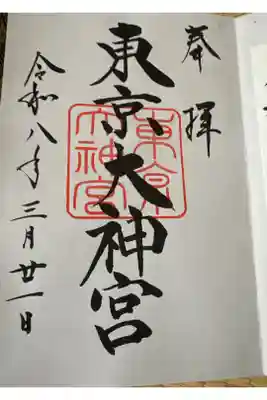 奉拝
東京大神宮
東京大神宮
令和八年三月廿一日